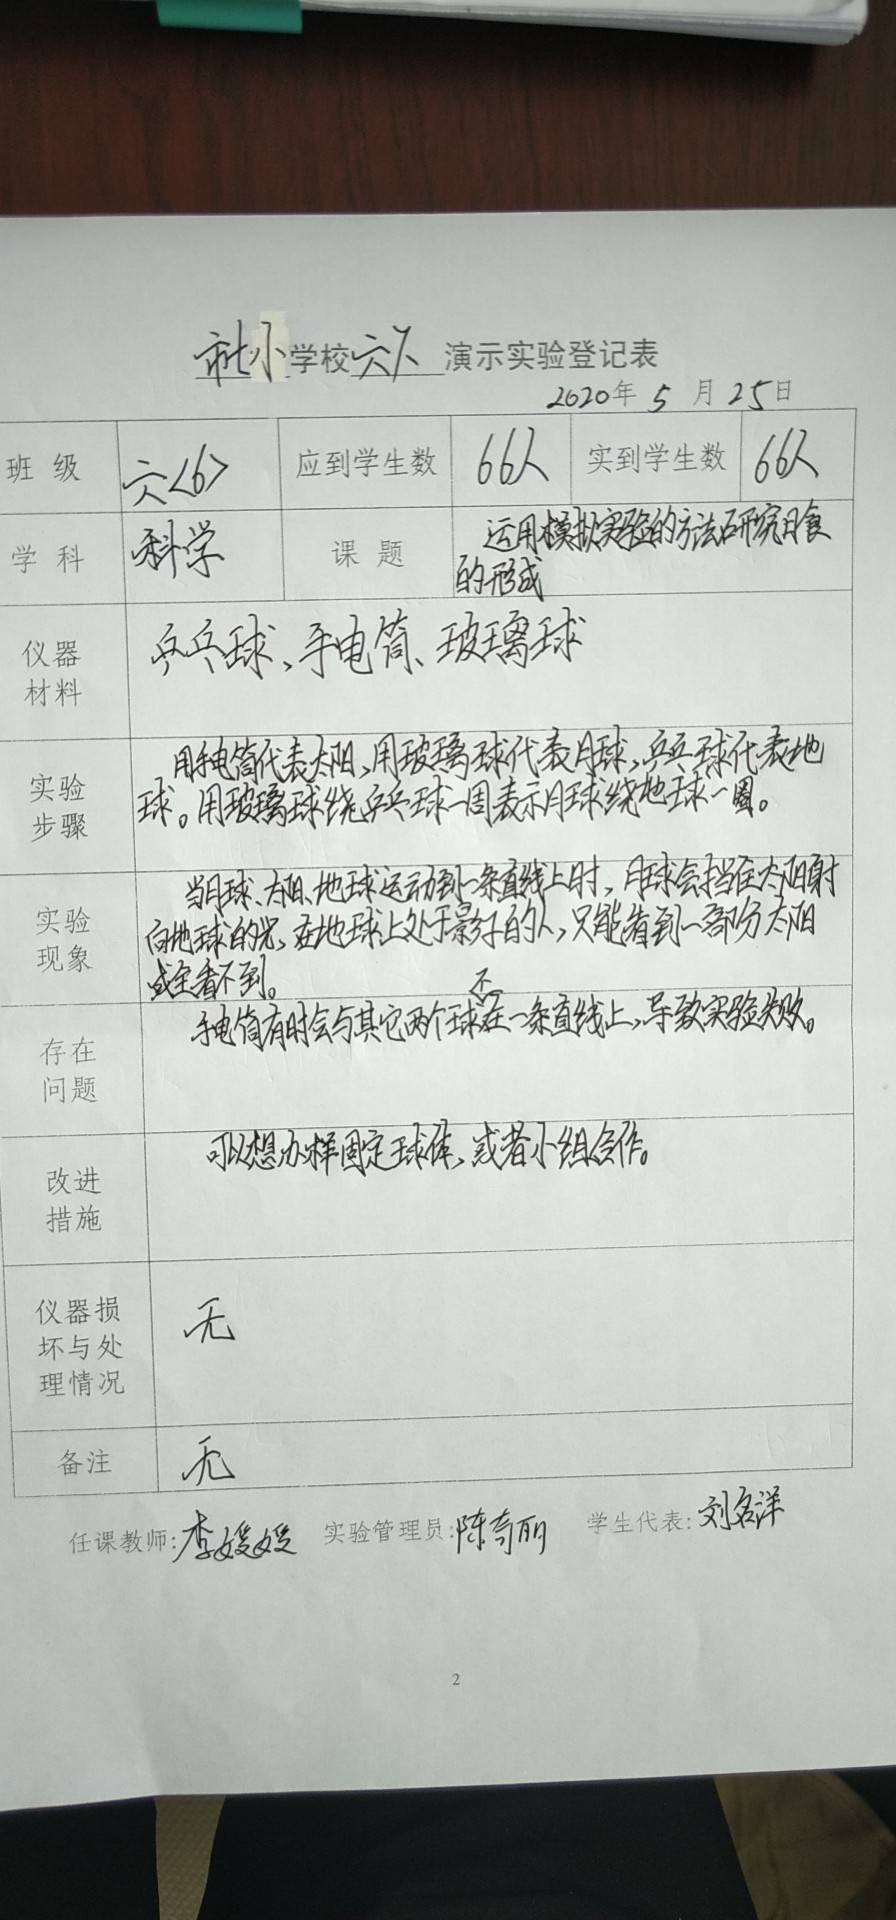 市七小学校六下演示实验登记表
2020年5月25日
班级 六<6> 应到学生数 66人 实到学生数 66人
学科 科学 课题 运用模拟实验的方法研究日食
的形成
仪器
材料
乒乓球、手电筒、玻璃球
实验
步骤
用手电筒代表太阳,用玻璃球代表月球,乒乓球代表地
球。用玻璃球绕乒乓球一周表示月球绕地球一圈。
实验
现象
当月球、太阳、地球运动到一条直线上时,月球会挡住太阳射
向地球的光,在地球上处于影子的人,只能看到一部分太阳
或全看不到。
存在
问题
手电筒有时会与其它两个球不在一条直线上,导致实验失败。
改进
措施
可以想办样固定球体,或者小组合作。
仪器损
坏与处
理情况
无
备注 无
任课教师:李媛媛 实验管理员:陈奇丽 学生代表:刘名洋
2